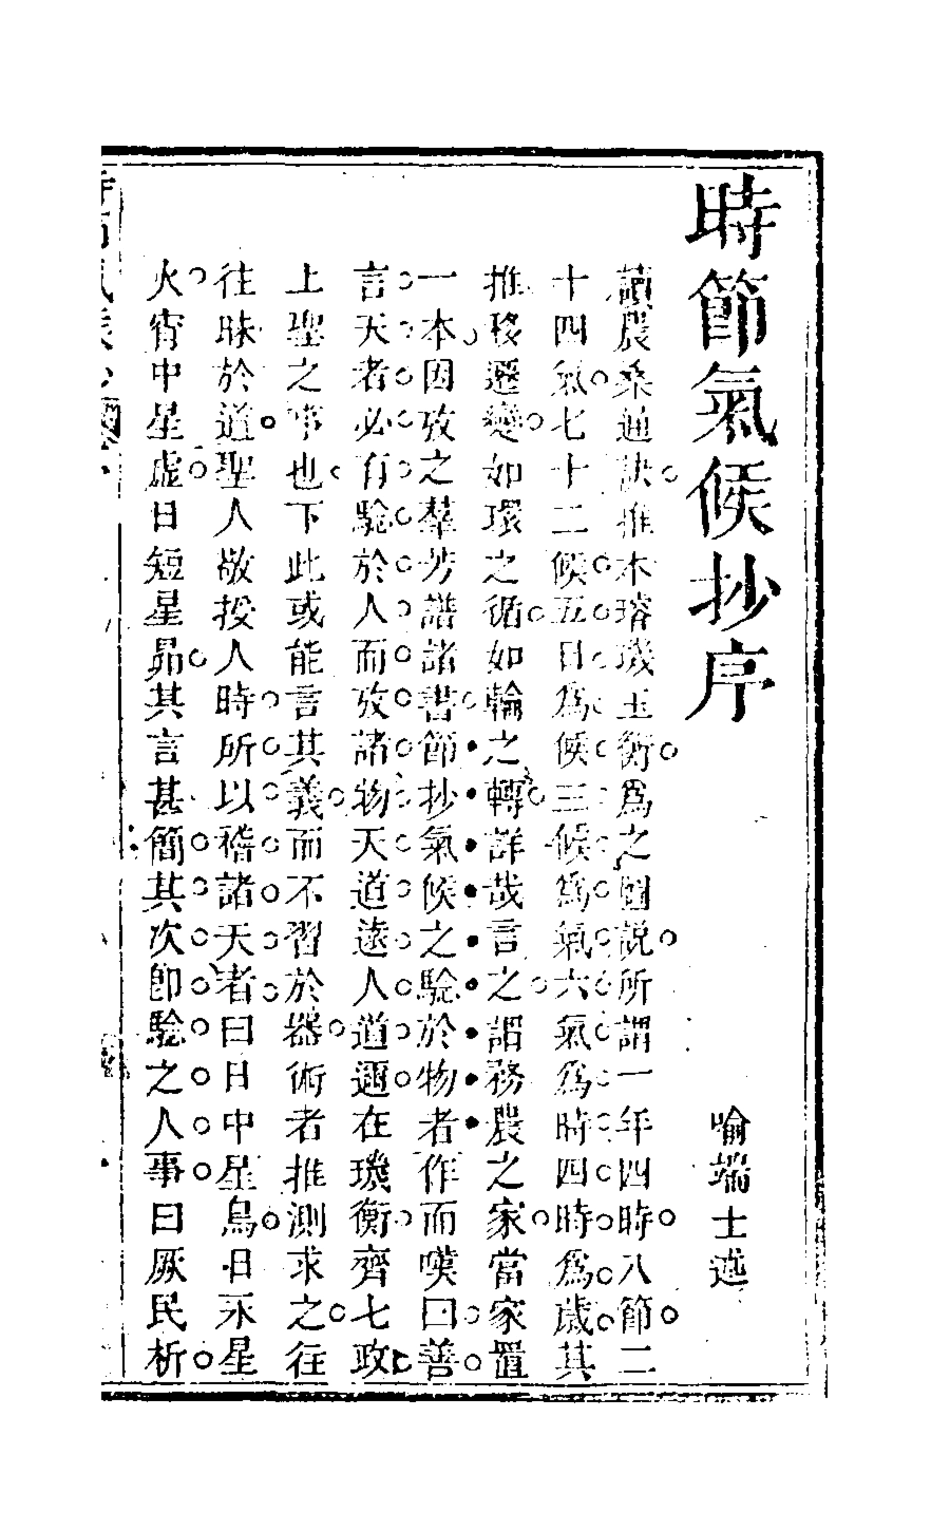 時節氣候抄序
喻端士述
讀農桑通訣推木璿璣玉衡為之圖説所謂一年四時八節二
十四氣七十二候五日為候三候為氣六氣為時四時為歲其
推移遷變如環之循如輪之轉詳哉言之謂務農之家當家置
一本因攷之羣芳譜諸書節抄氣候之驗於物者作而嘆曰善
言天者必有驗於人而攷諸物天道遠人道邇在璣衡齊七政
上聖之事也下此或能言其義而不習於器術者推測求之往
往昧於道聖人敬授人時所以稽諸天者曰日中星鳥日永星
火宵中星虛日短星昴其言甚簡其次卽驗之人事曰厥民析